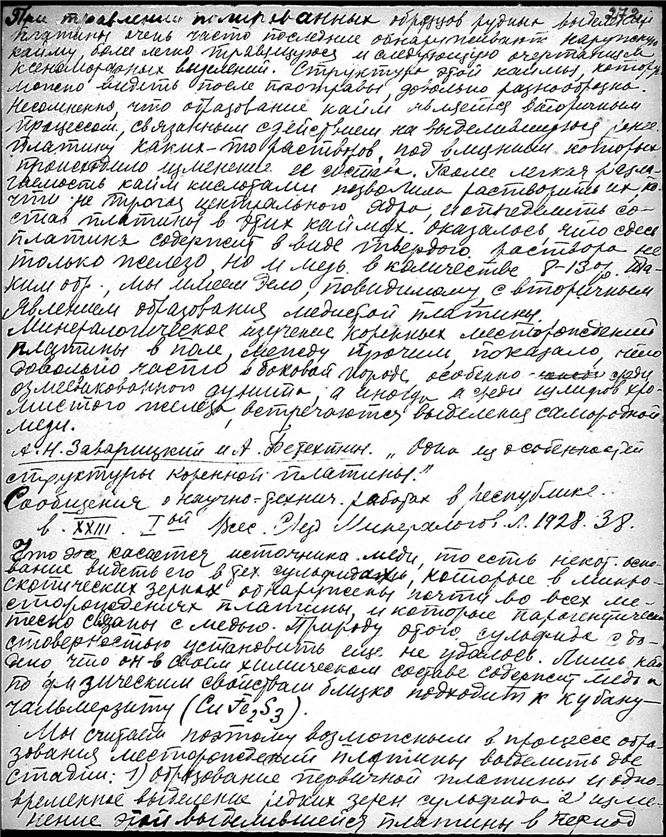 272
При травлении полированных образцов рудных выделений
платины очень часто последние обнаруживают наружную
кайму более легко травящуюся и следующую очертаниям
ксеноморфных выделений. Структура этой каймы, которую
можно видеть после протравы довольно разнообразна.
Несомненно, что образование кайм является вторичным
процессом, связанным с действием на выделившуюся ранее
платину каких-то растворов, под влиянием которых
происходило изменение ее состава. Более легкая разла-
гаемость кайм кислотами позволила растворить их, по-
чти не трогая центрального ядра, и определить со-
став платины в этих каймах. оказалось что здесь
платина содержит в виде твердого раствора не
только железо, но и медь в количестве 8-13%. Та-
ким обр., мы имеем дело, повидимому с вторичным
явлением образования медистой платины.
Минералогическое изучение коренных месторождений
платины в поле, между прочим, показало, что
довольно часто в боковой породе, особенно среди
озмеевикованного дунита, а иногда и среди шлифов хро-
мистого железа, встречаются выделения самородной
меди.
А.Н. Заварицкий и А. Бетехтин. „Одна из особенностей
структуры коренной платины."
Сообщения о научно-технич. работах в республике.
в. XXIII. Iой Всес. Съезд Минералогов Л. 1928. 38.
Что же касается источника меди, то есть некот. осно-
вание видеть его в тех сульфидах, которые в микро-
скопических зернах обнаружены почти во всех ме-
сторождениях платины, и которые парагенетически
тесно связаны с медью. Природу этого сульфида с до-
стоверностью установить еще не удалось. Лишь, на-
дело что он в своем химическом составе содержит медь и
по физическим свойствам близко подходит к кубану-
чальмерзиту (CuFe2S3).
Мы считаем поэтому возможным в процессе обра-
зования месторождений платины выделить две
стадии: 1) образование первичной платины и одно-
временное выделение редких зерен сульфида 2) изме-
нение этой выделившейся платины в период